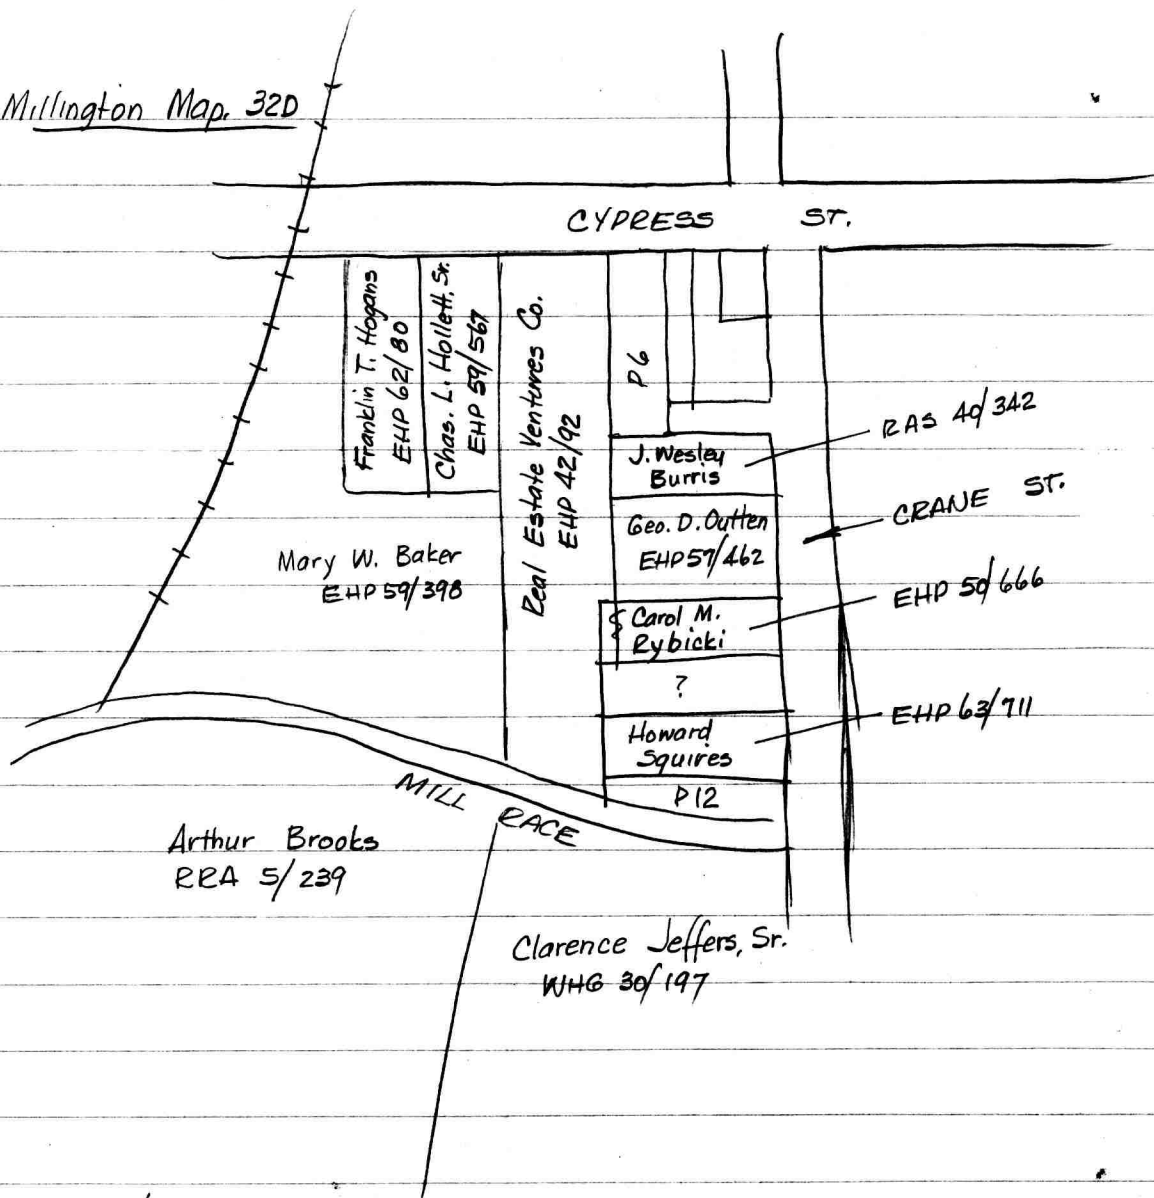 Millington Map. 32D
CYPRESS ST.
Franklin T. Hogans
EHP 62/80
Chas. L. Hollett, Sr.
EHP 59/567
Real Estate Ventures Co.
EHP 42/92
P6
J. Wesley
Burris
RAS 40/342
Geo. D. Outten
EHP 57/462
CRANE ST.
Mary W. Baker
EHP 59/398
Carol M.
Rybicki
EHP 50/666
?
Howard
Squires
EHP 63/711
P12
MILL RACE
Arthur Brooks
RRA 5/239
Clarence Jeffers, Sr.
WHG 30/197